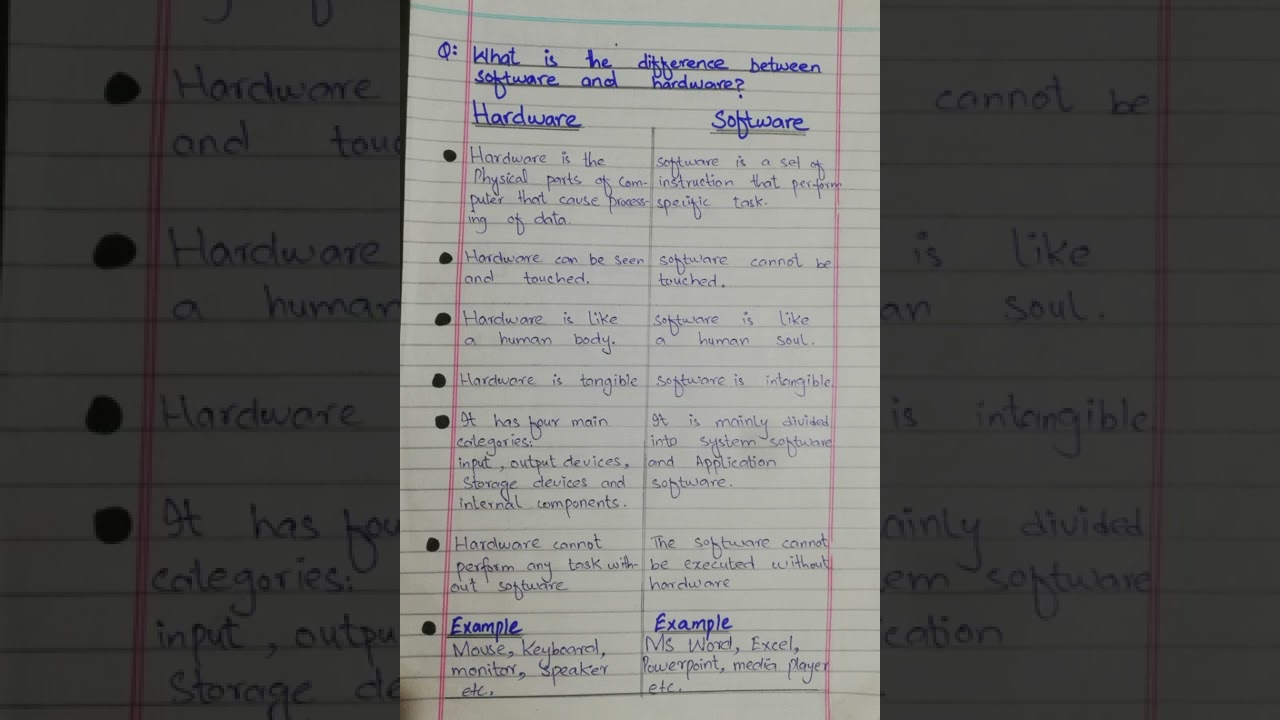 Q: What is the difference between
software and hardware?
Hardware
Hardware is the
Physical parts of com-
puter that cause process-
ing of data.
Hardware can be seen
and touched.
Hardware is like
a human body.
Hardware is tangible
It has four main
categories:
input, output devices,
Storage devices and
internal components.
Hardware cannot
perform any task with-
out software
Example
Mouse, Keyboard,
monitor, Speaker
etc.
Software
software is a set of
instruction that perform
specific task.
software cannot be
touched.
software is like
a human soul.
software is intangible
It is mainly divided
into system software
and Application
software.
The software cannot
be executed without
hardware
Example
Ms Word, Excel,
Powerpoint, media player
etc.